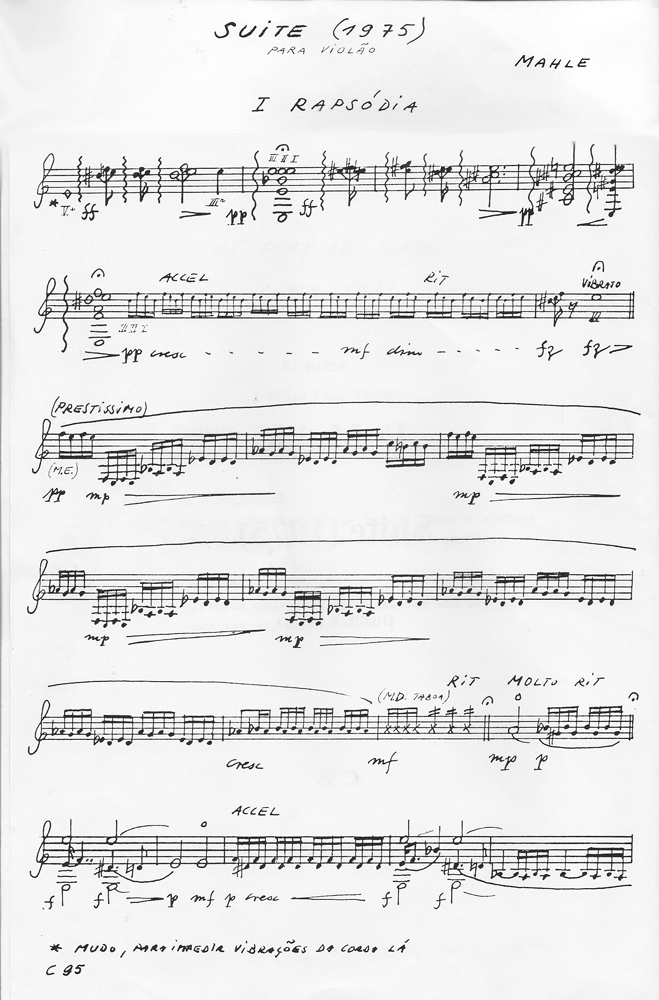 SUITE (1975)
PARA VIOLÃO
MAHLE
I RAPSÓDIA
III II I
* V ff III pp ff pp
ACCEL RIT VIBRATO
III II I III
pp cresc - - - - - mf dim - - - - - fz fz
(PRESTISSIMO)
(M.E.)
pp mp mp
mp mp
(M.D. TABOA) RIT MOLTO RIT
cresc mf mp p
ACCEL
f f p mf p cresc f f
* MUDO, PARA IMPEDIR VIBRAÇÕES DA CORDA LÁ
C 95